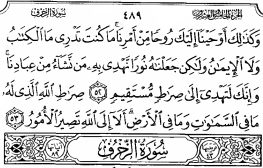 سورة الزخرف ٤٨٩ الجزء الخامس والعشرون
وَكَذَٰلِكَ أَوْحَيْنَا إِلَيْكَ رُوحًا مِّنْ أَمْرِنَا مَا كُنتَ تَدْرِى مَا ٱلْكِتَٰبُ
وَلَا ٱلْإِيمَٰنُ وَلَٰكِن جَعَلْنَٰهُ نُورًا نَّهْدِى بِهِۦ مَن نَّشَآءُ مِنْ عِبَادِنَا ۚ
وَإِنَّكَ لَتَهْدِىٓ إِلَىٰ صِرَٰطٍ مُّسْتَقِيمٍ ٥٢ صِرَٰطِ ٱللَّهِ ٱلَّذِى لَهُۥ
مَا فِى ٱلسَّمَٰوَٰتِ وَمَا فِى ٱلْأَرْضِ ۗ أَلَآ إِلَى ٱللَّهِ تَصِيرُ ٱلْأُمُورُ ٥٣
سُورَةُ ٱلزُّخْرُفِ